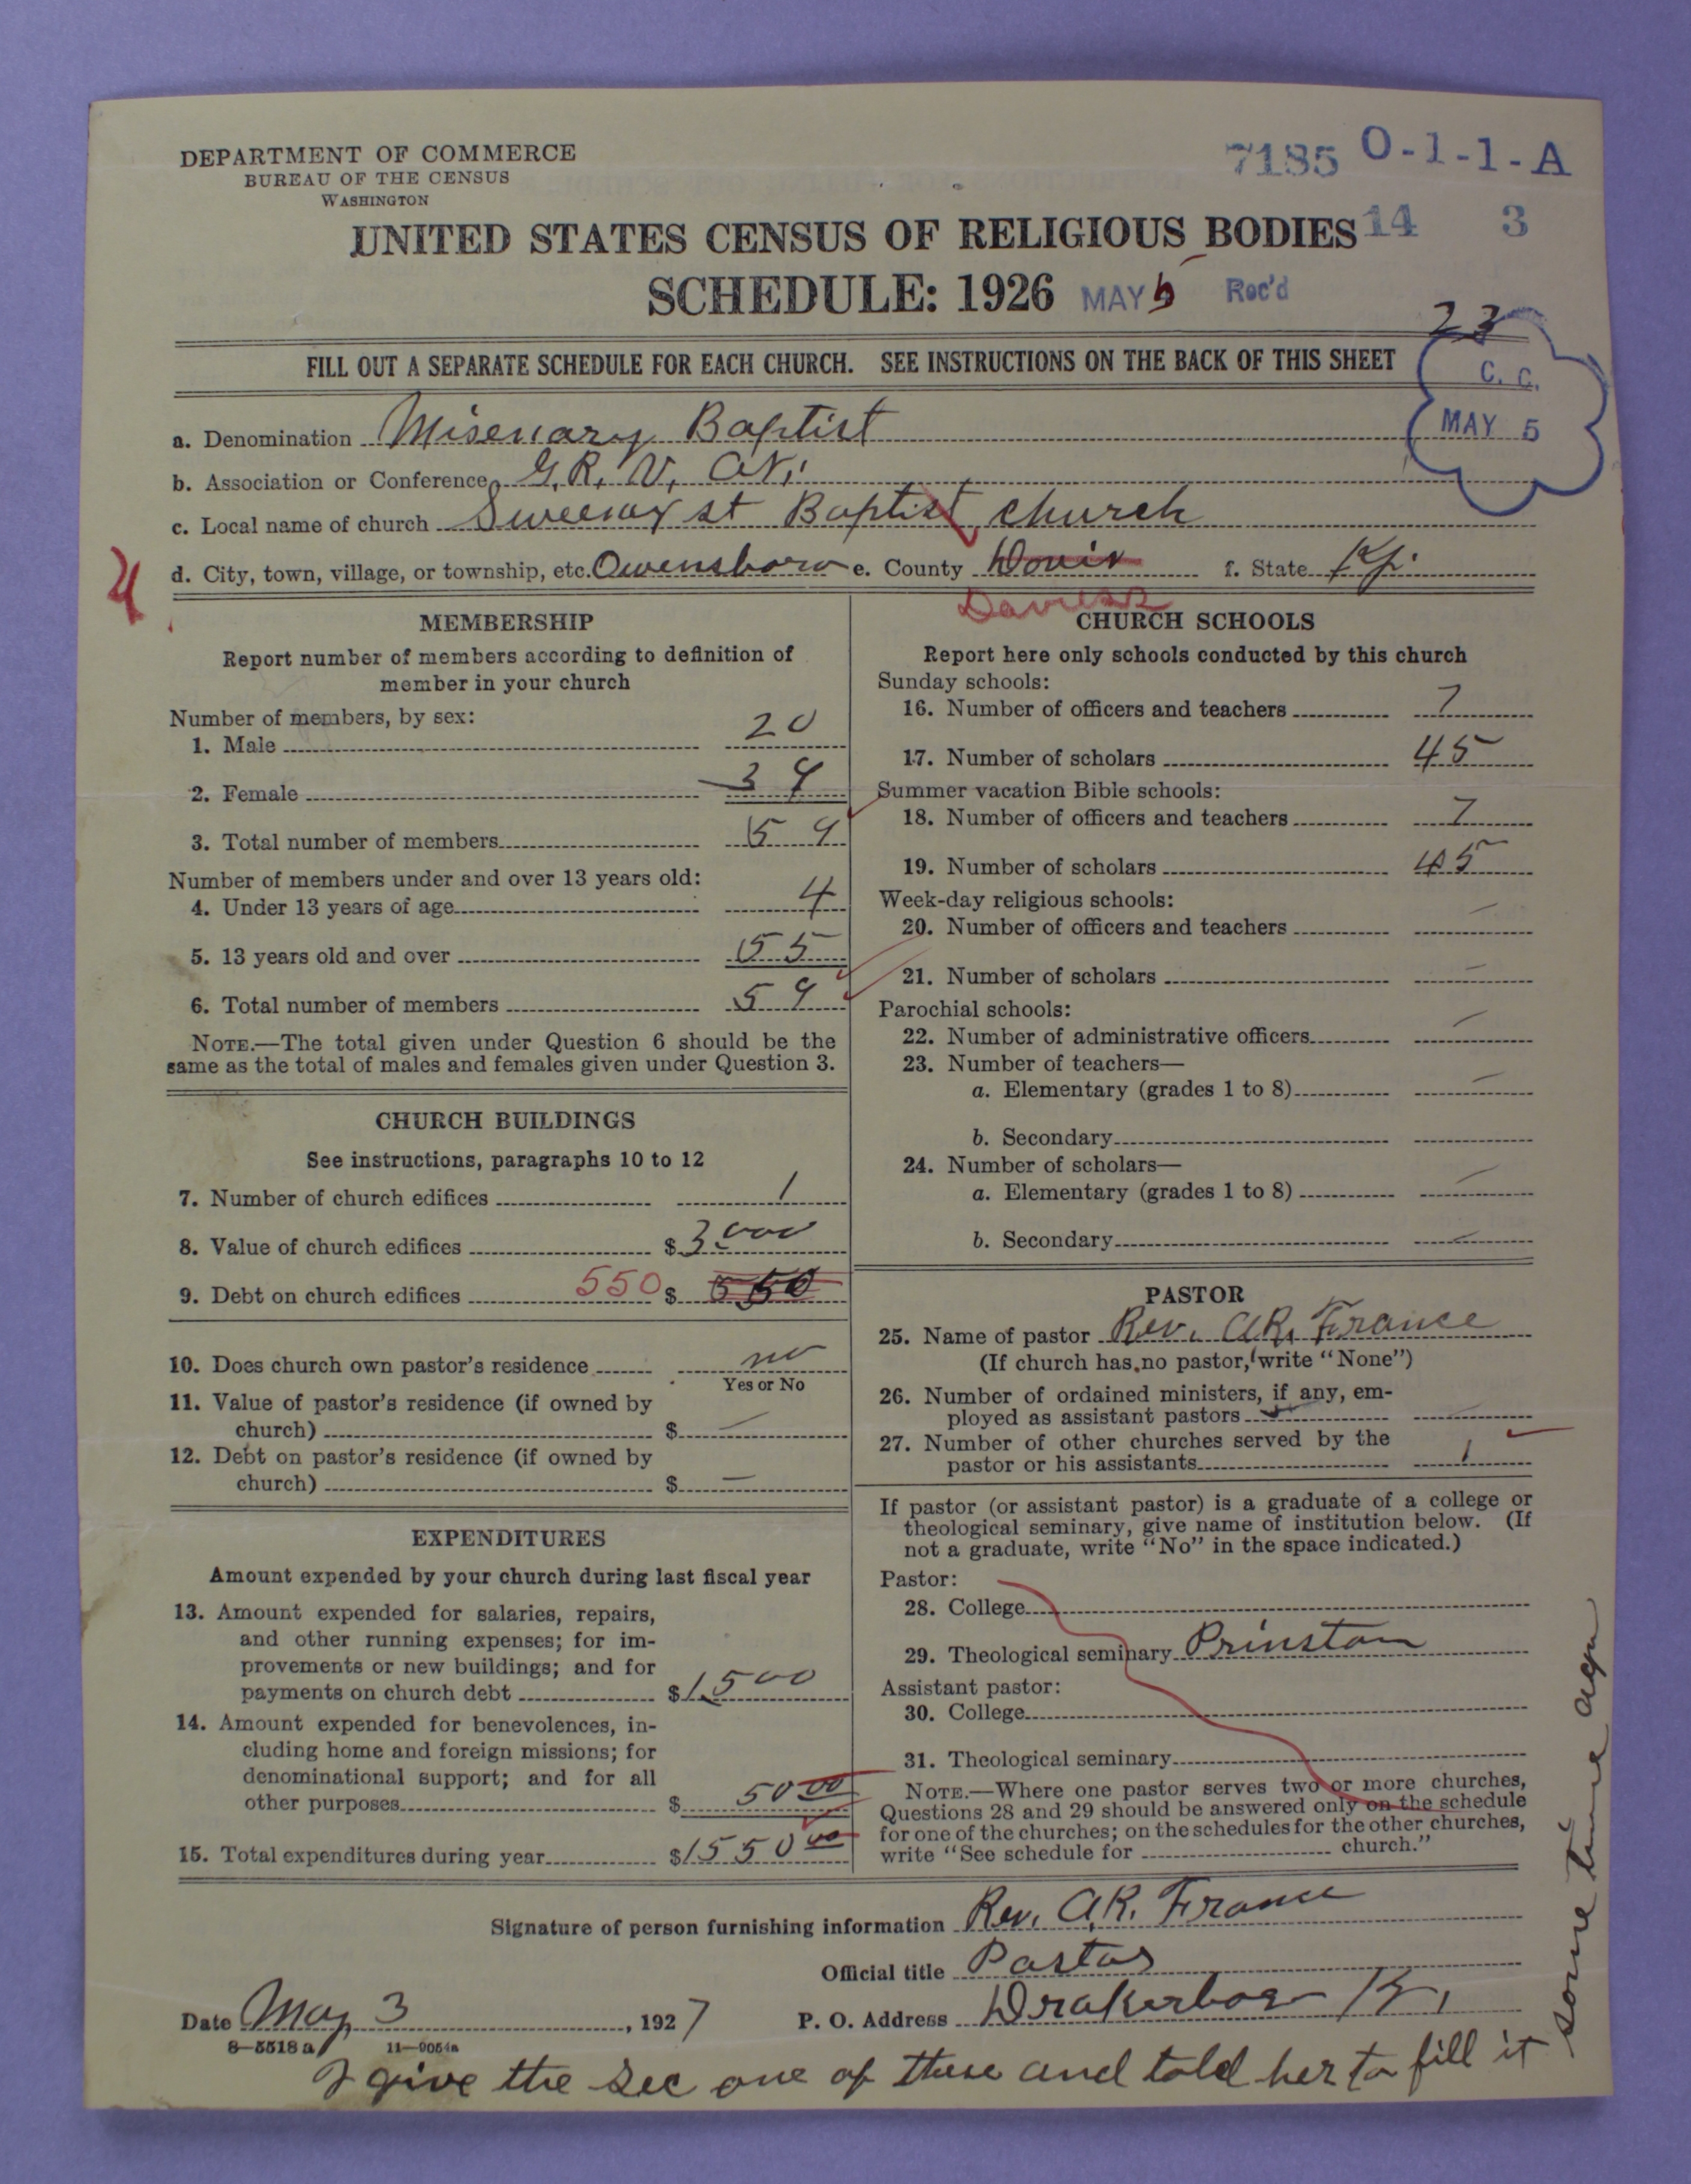 DEPARTMENT OF COMMERCE
BUREAU OF THE CENSUS
WASHINGTON
7185 O-1-1-A
UNITED STATES CENSUS OF RELIGIOUS BODIES
14 3
SCHEDULE: 1926
MAY 5 Rec'd
23
FILL OUT A SEPARATE SCHEDULE FOR EACH CHURCH. SEE INSTRUCTIONS ON THE BACK OF THIS SHEET
C. C.
MAY 5
a. Denomination Misenary Baptist
b. Association or Conference G.R.V.
c. Local name of church Sweeney st Baptist church
d. City, town, village, or township, etc. Owensboro e. County f. State Ky.
Daviess
MEMBERSHIP
Report number of members according to definition of
member in your church
Number of members, by sex:
1. Male 20
2. Female 39
3. Total number of members 59
Number of members under and over 13 years old:
4. Under 13 years of age 4
5. 13 years old and over 55
6. Total number of members 59
NOTE.—The total given under Question 6 should be the
same as the total of males and females given under Question 3.
CHURCH BUILDINGS
See instructions, paragraphs 10 to 12
7. Number of church edifices 1
8. Value of church edifices $ 3000
9. Debt on church edifices 550 $ 550
10. Does church own pastor's residence no
Yes or No
11. Value of pastor's residence (if owned by
church) $ —
12. Debt on pastor's residence (if owned by
church) $ —
EXPENDITURES
Amount expended by your church during last fiscal year
13. Amount expended for salaries, repairs,
and other running expenses; for im-
provements or new buildings; and for
payments on church debt $ 1500
14. Amount expended for benevolences, in-
cluding home and foreign missions; for
denominational support; and for all
other purposes $ 50 00
15. Total expenditures during year $ 1550 00
CHURCH SCHOOLS
Report here only schools conducted by this church
Sunday schools:
16. Number of officers and teachers 7
17. Number of scholars 45
Summer vacation Bible schools:
18. Number of officers and teachers 7
19. Number of scholars 45
Week-day religious schools:
20. Number of officers and teachers —
21. Number of scholars —
Parochial schools:
22. Number of administrative officers —
23. Number of teachers—
a. Elementary (grades 1 to 8) —
b. Secondary
24. Number of scholars—
a. Elementary (grades 1 to 8) —
b. Secondary —
PASTOR
25. Name of pastor Rev. A.R. France
(If church has no pastor, write "None")
26. Number of ordained ministers, if any, em-
ployed as assistant pastors —
27. Number of other churches served by the
pastor or his assistants 1
If pastor (or assistant pastor) is a graduate of a college or
theological seminary, give name of institution below. (If
not a graduate, write "No" in the space indicated.)
Pastor:
28. College
29. Theological seminary Prinston
Assistant pastor:
30. College
31. Theological seminary
NOTE.—Where one pastor serves two or more churches,
Questions 28 and 29 should be answered only on the schedule
for one of the churches; on the schedules for the other churches,
write "See schedule for church."
Signature of person furnishing information Rev. A.R. France
Official title Pastor
Date May 3, 1927 P. O. Address Drakesboro Ky.
8-5518a 11-9054a
I give the Sec one of these and told her to fill it
some time ago